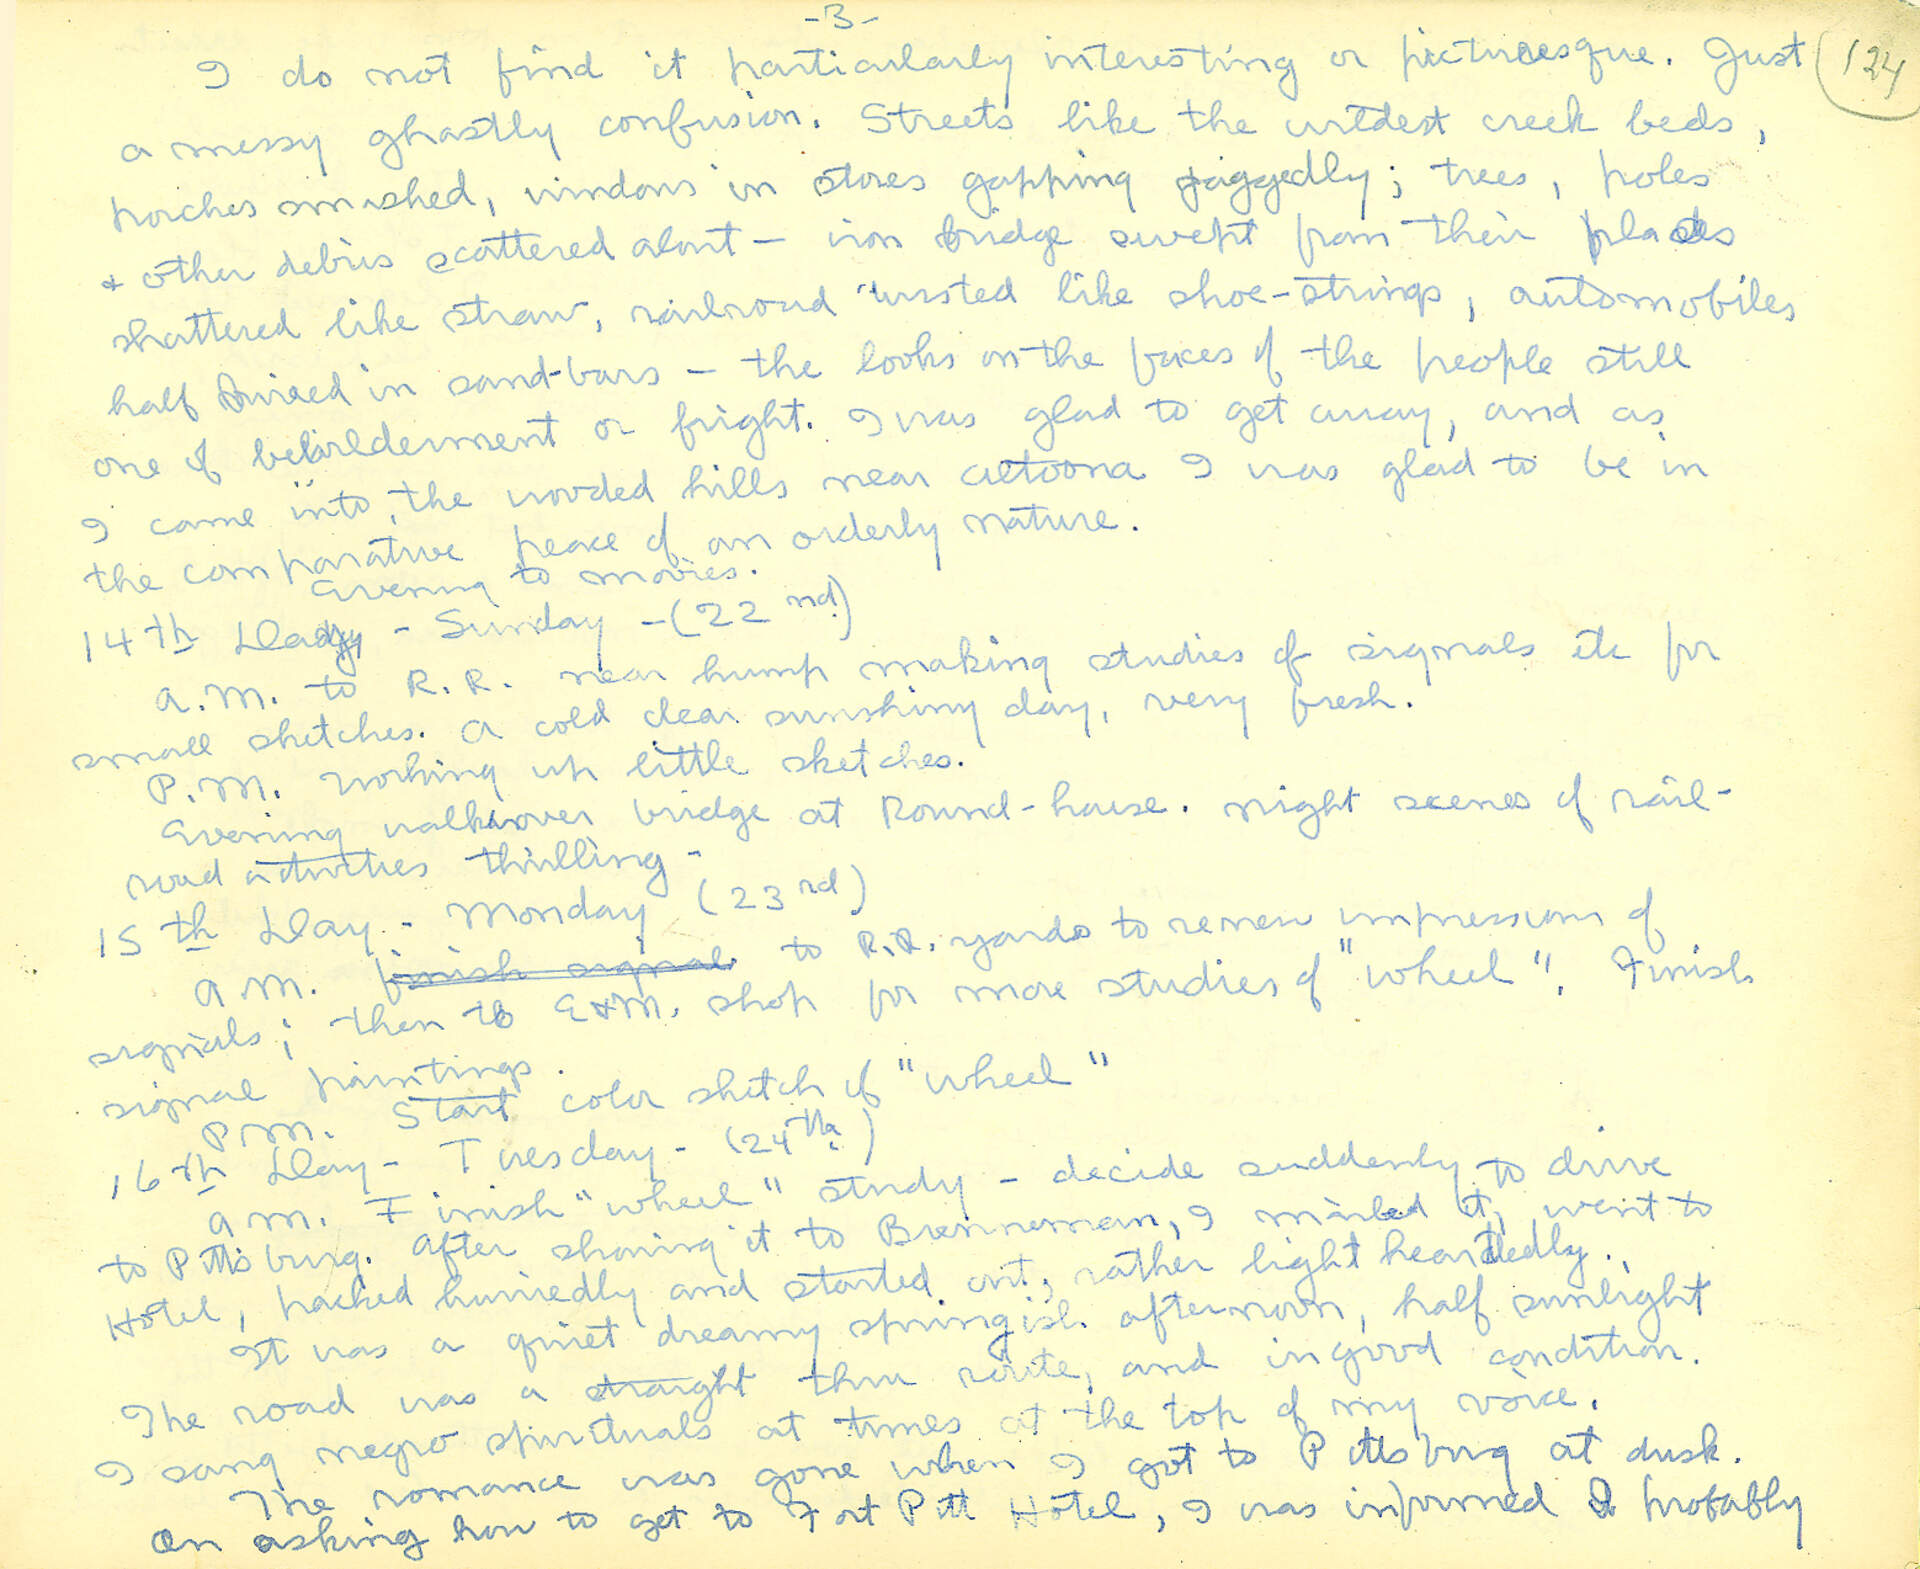 -3-
124
I do not find it particularly interesting or picturesque. Just
a messy ghastly confusion. Streets like the wildest creek beds,
porches smashed, windows in stores gapping jaggedly; trees, poles
+ other debris scattered about — iron bridge swept from their places
shattered like straw, railroad twisted like shoe-strings, automobiles
half buried in sand-bars — the looks on the faces of the people still
one of bewilderment or fright. I was glad to get away, and as
I came into the wooded hills near Altoona I was glad to be in
the comparative peace of an orderly nature.
Evening to movies.
14th Day - Sunday - (22nd)
A.M. to R.R. near hump making studies of signals etc for
small sketches. A cold clear sunshiny day, very fresh.
P.M. Working up little sketches.
Evening walk over bridge at Round-house. Night scenes of rail-
road activities thrilling -
15th Day - Monday (23rd)
A.M. finish signal to R.R. yards to renew impressions of
signals; then to E+M. shop for more studies of "wheel". Finish
signal paintings.
P.M. Start color sketch of "wheel"
16th Day - Tuesday - (24th)
A.M. Finish "wheel" study - decide suddenly to drive
to Pittsburg. After showing it to Brenneman, I mailed it, went to
Hotel, packed hurriedly and started out, rather light heartedly.
It was a quiet dreamy springish afternoon, half sunlight
The road was a straight thru route, and in good condition.
I sang negro spirituals at times at the top of my voice.
The romance was gone when I got to Pittsburg at dusk.
On asking how to get to Fort Pitt Hotel, I was informed I probably